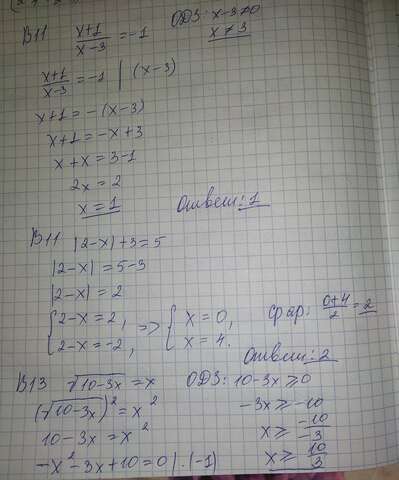 B11 x+1/x-3 = -1 ОДЗ: x-3≠0
x≠3
x+1/x-3 = -1 | (x-3)
x+1 = -(x-3)
x+1 = -x+3
x+x = 3-1
2x = 2
x = 1 Ответ: 1
B11 |2-x|+3=5
|2-x| = 5-3
|2-x| = 2
{ 2-x = 2, => { x = 0, Ср.ар: 0+4/2 = 2
2-x = -2, x = 4.
Ответ: 2
B13 √10-3x = x ОДЗ: 10-3x ≥ 0
(√10-3x)² = x² -3x ≥ -10
10-3x = x² x ≥ -10/-3
-x²-3x+10=0 |·(-1) x ≥ 10/3